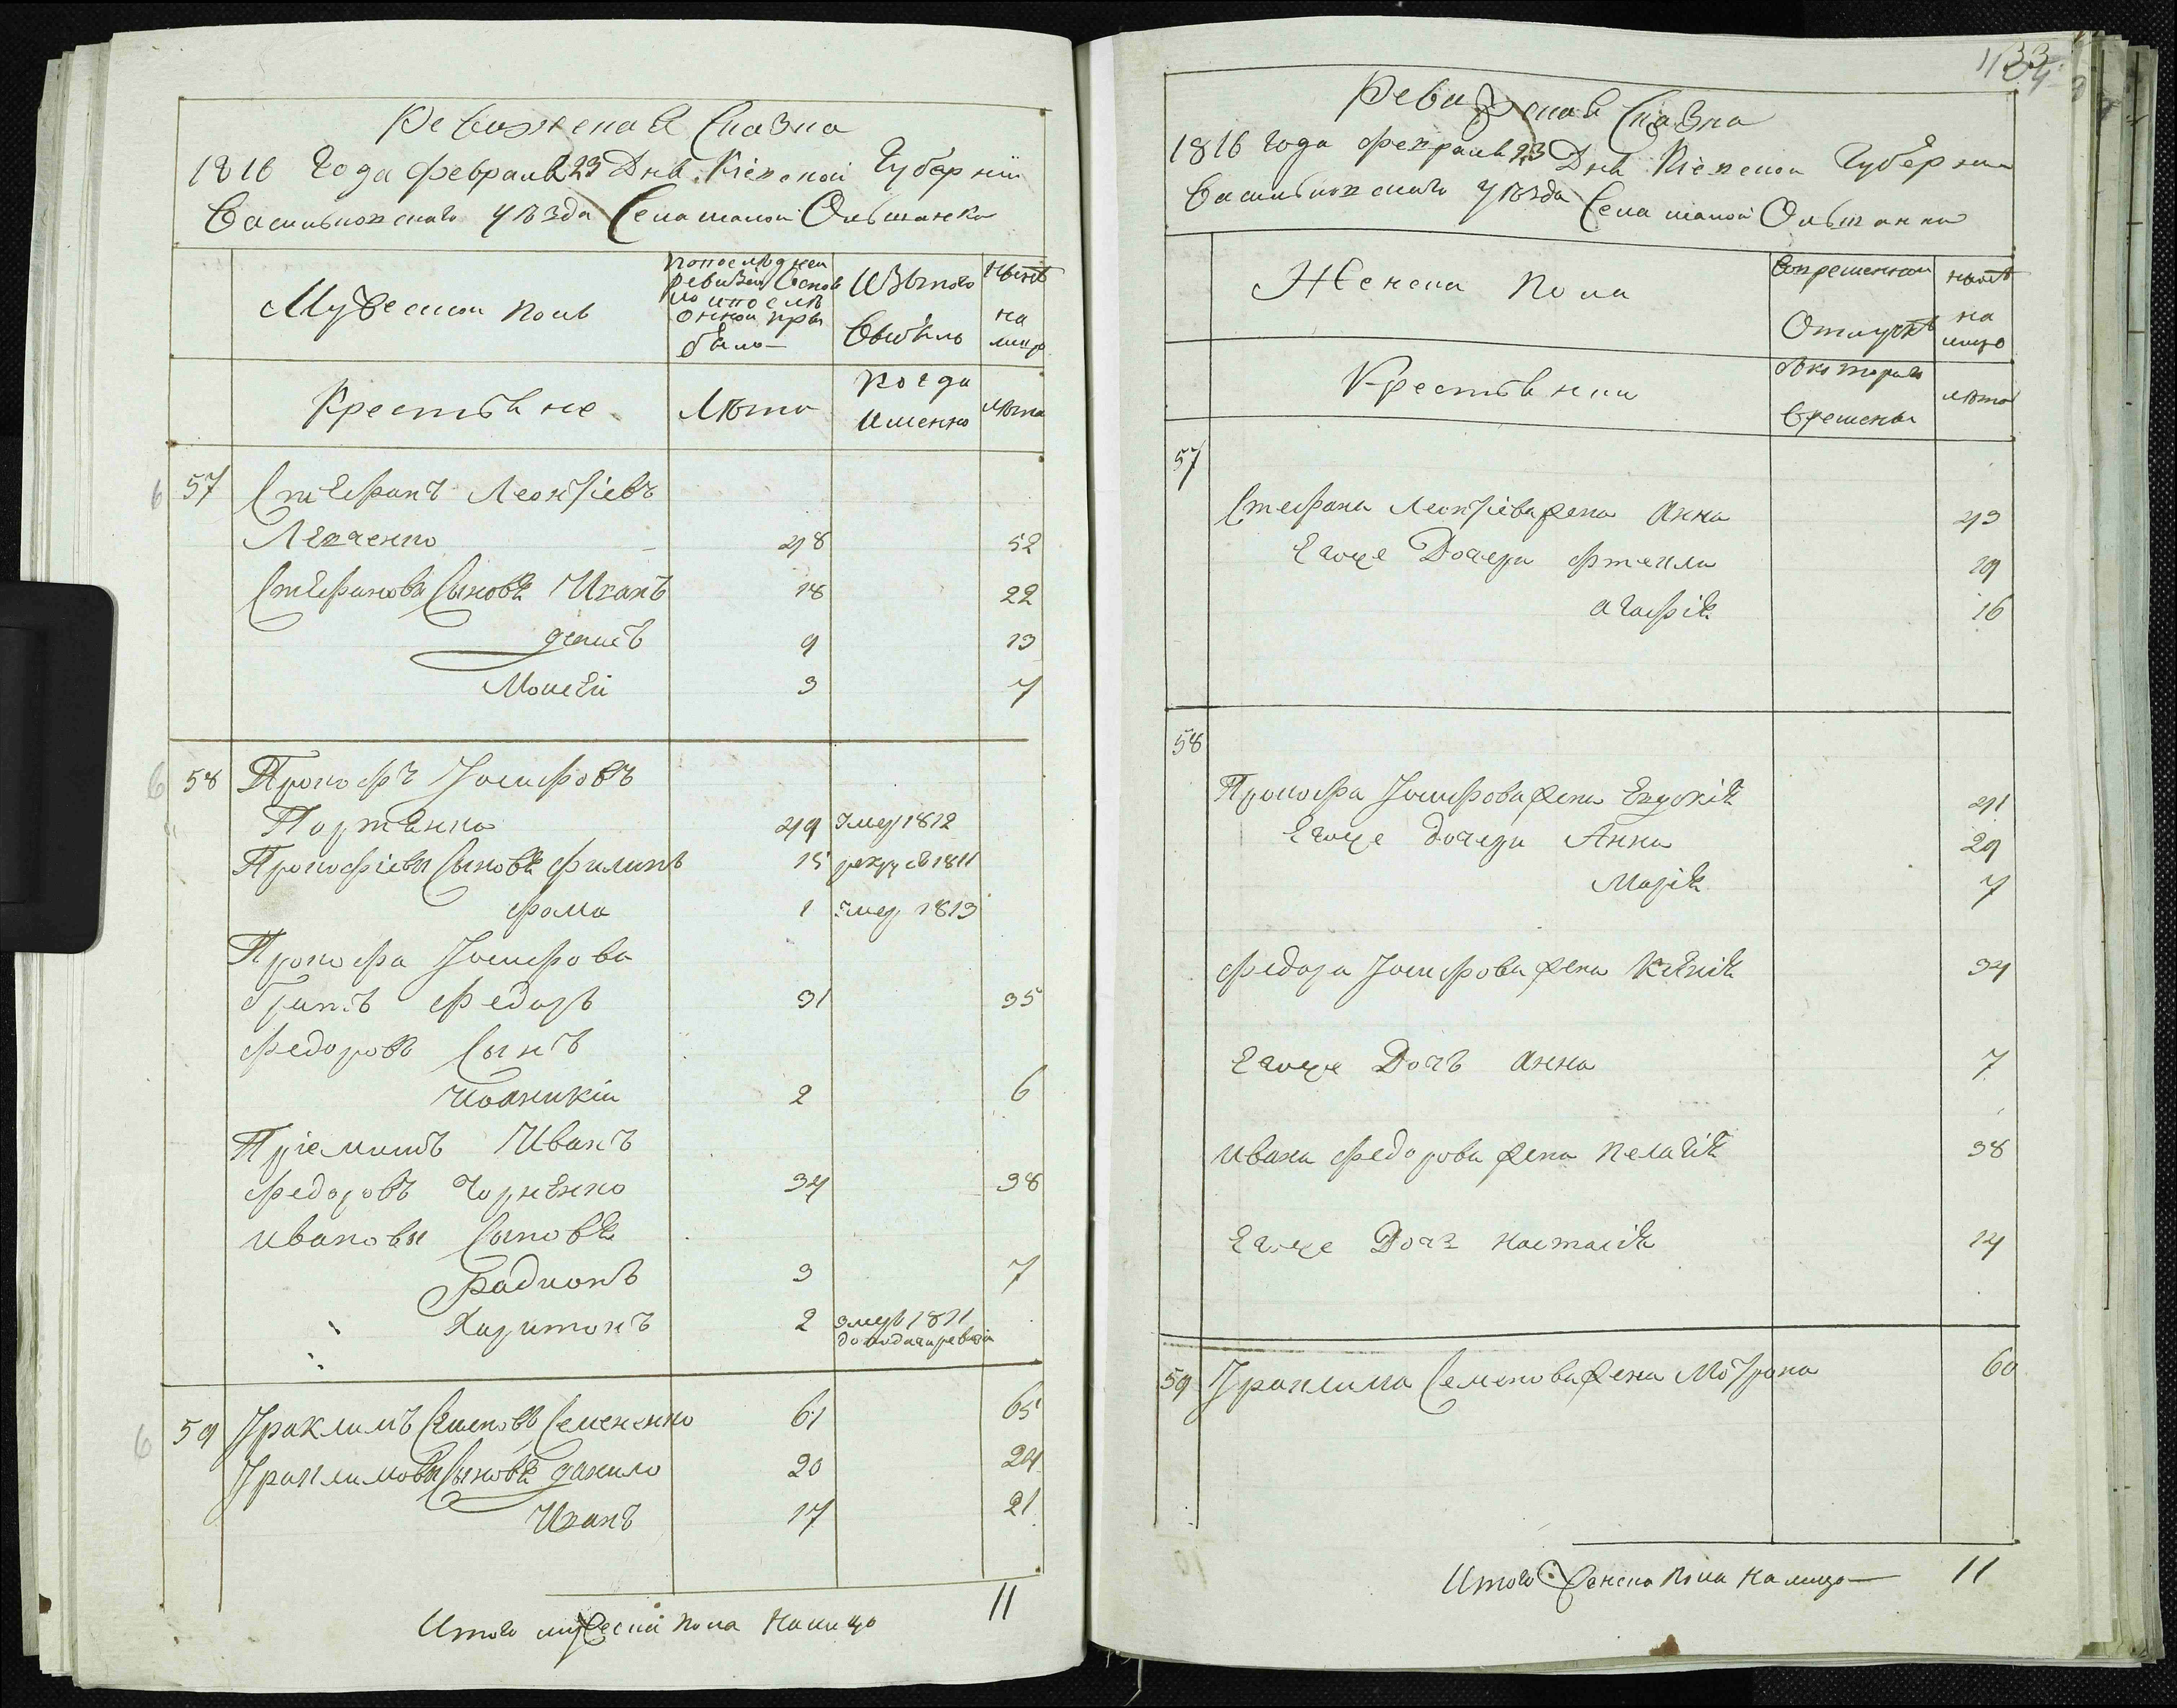 Ревижская Сказка
1816 Года февраля 23 Дня Кіевской Губерніи
Васильковского уезда Села малой Ольшанки
Мужеской полъ
по последней
ревизіи Состоя
ло и после
оной при
было
Изъ того
Выбыло
Ныне
на
лицо
Крестьяне
Лета
Когда
Именно
Лета
6 57 Стефанъ Леонтіевъ
Левченко 48 52
Стефановы Сыновья Иванъ 18 22
9 13
Моисей 3 7
6 58 Прокофъ Іосифовъ
Портенко 49 умер 1812
Прокофіевы Сыновья Филипъ 15 рекру въ 1811
Фома 1 умер 1813
Прокофа Іосифова
братъ Федоръ 31 35
Федоровъ Сынъ
Іоаникій 2 6
Пріемышъ Иванъ
Федоровъ Чорненко 34 38
Ивановы Сыновья
Радионъ 3 7
Харитонъ 2 умеръ 1811
до подачи ревизіи
6 59 Іраклимъ Семеновъ Семененко 61 65
Іраклимовы Сыновья Данило 20 24
Иванъ 17 21
Итого мужеска пола на лицо 11
33
Ревижская Сказка
1816 года февраля 23 Дня Кіевской Губерніи
Васильковского уезда Села малой Ольшанки
Женска пола
Во временной
Отлучке
ныне
на
лицо
Крестьянки
съ котораго
времены
лета
57
Стефана Леонтіева жена Анна 43
Егоже Дочери 19
Агафія 16
58
Прокофа Іосифова жена Евдокія 41
Егоже дочери Анна 20
Марія 7
Федора Іосифова жена Ксенія 34
Егоже Дочь Анна 7
Ивана Федорова жена Пелагія 38
Егоже Дочь Настасія 14
59 Іраклима Семенова жена Мотрона 60
Итого женска пола на лицо 11